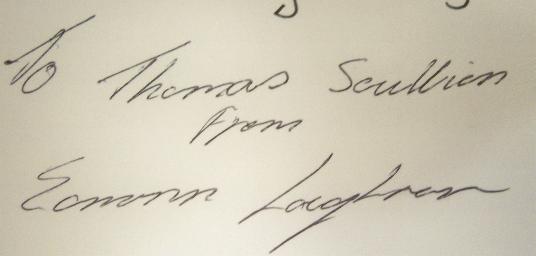 To Thomas Scullion
From
Eamonn Loughran